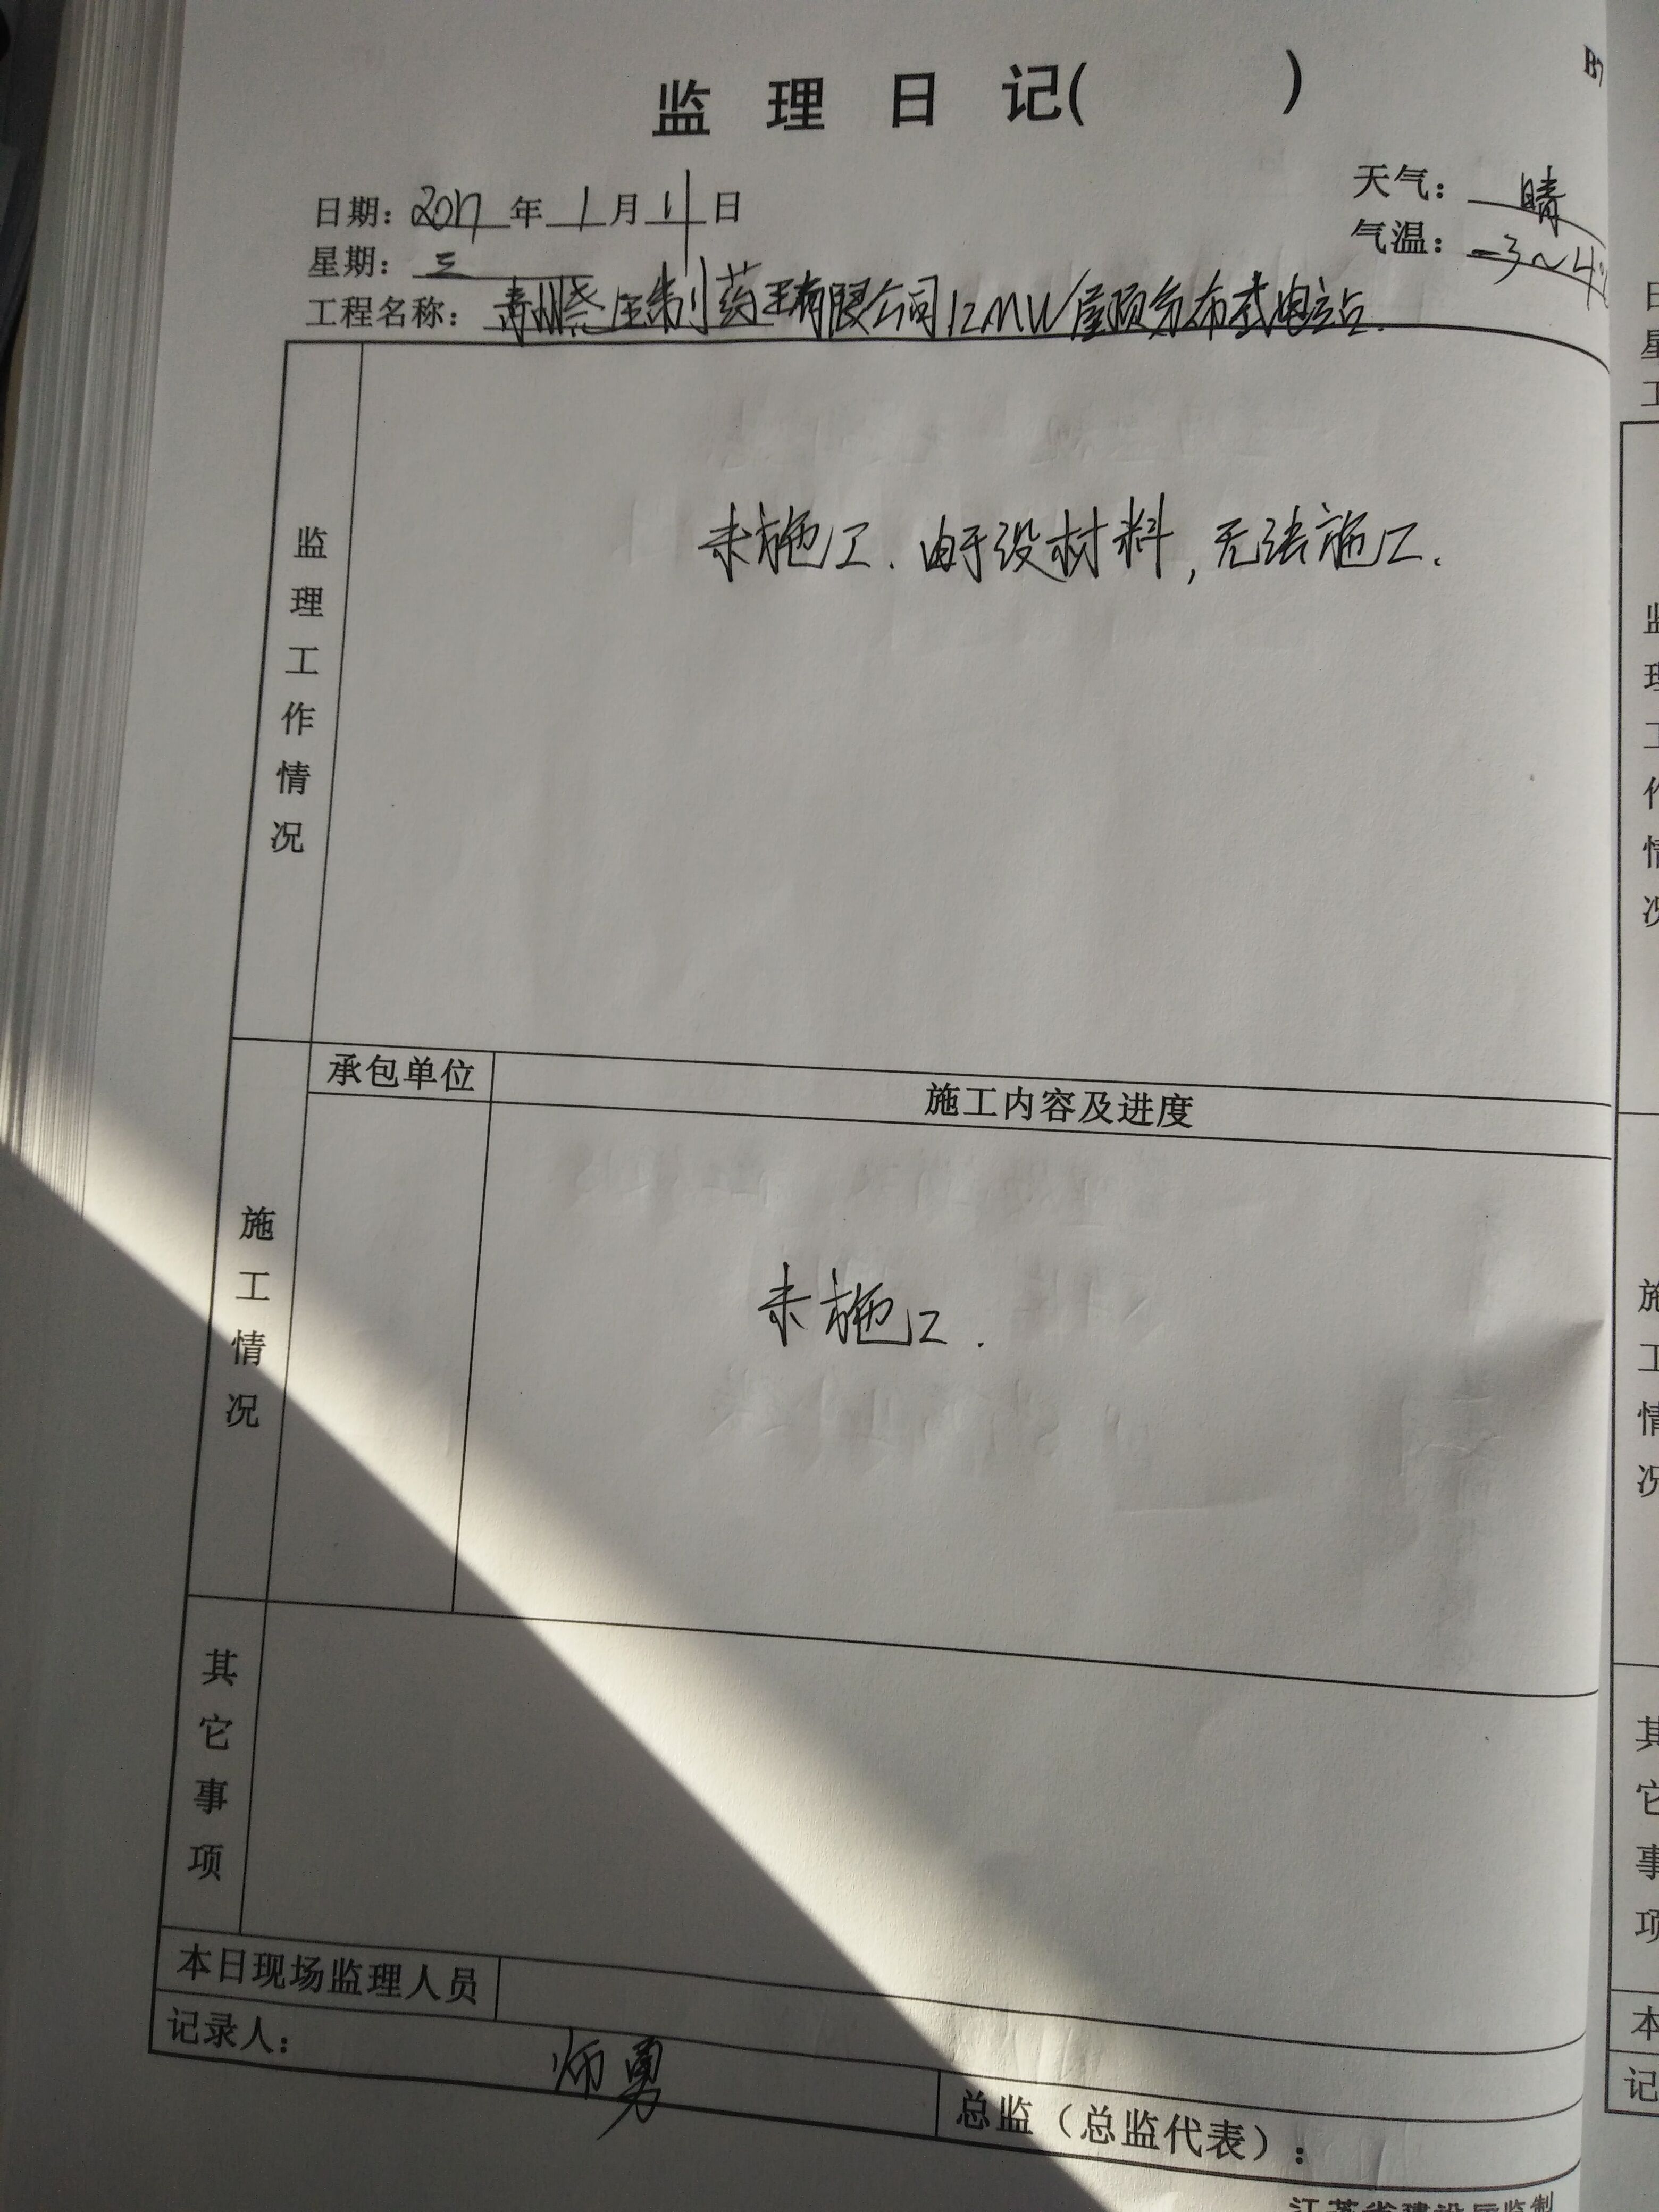 监理日记( )
B7
日期: 2017 年 1 月 11 日
天气: 晴
星期: 三
气温: -3~4℃
工程名称: 青州尧王制药有限公司12MW屋顶分布式电站.
监理工作情况
未施工. 由于没材料, 无法施工.
施工情况
承包单位 施工内容及进度
未施工.
其它事项
本日现场监理人员
记录人: 师勇
总监（总监代表）:
江苏省建设厅监制